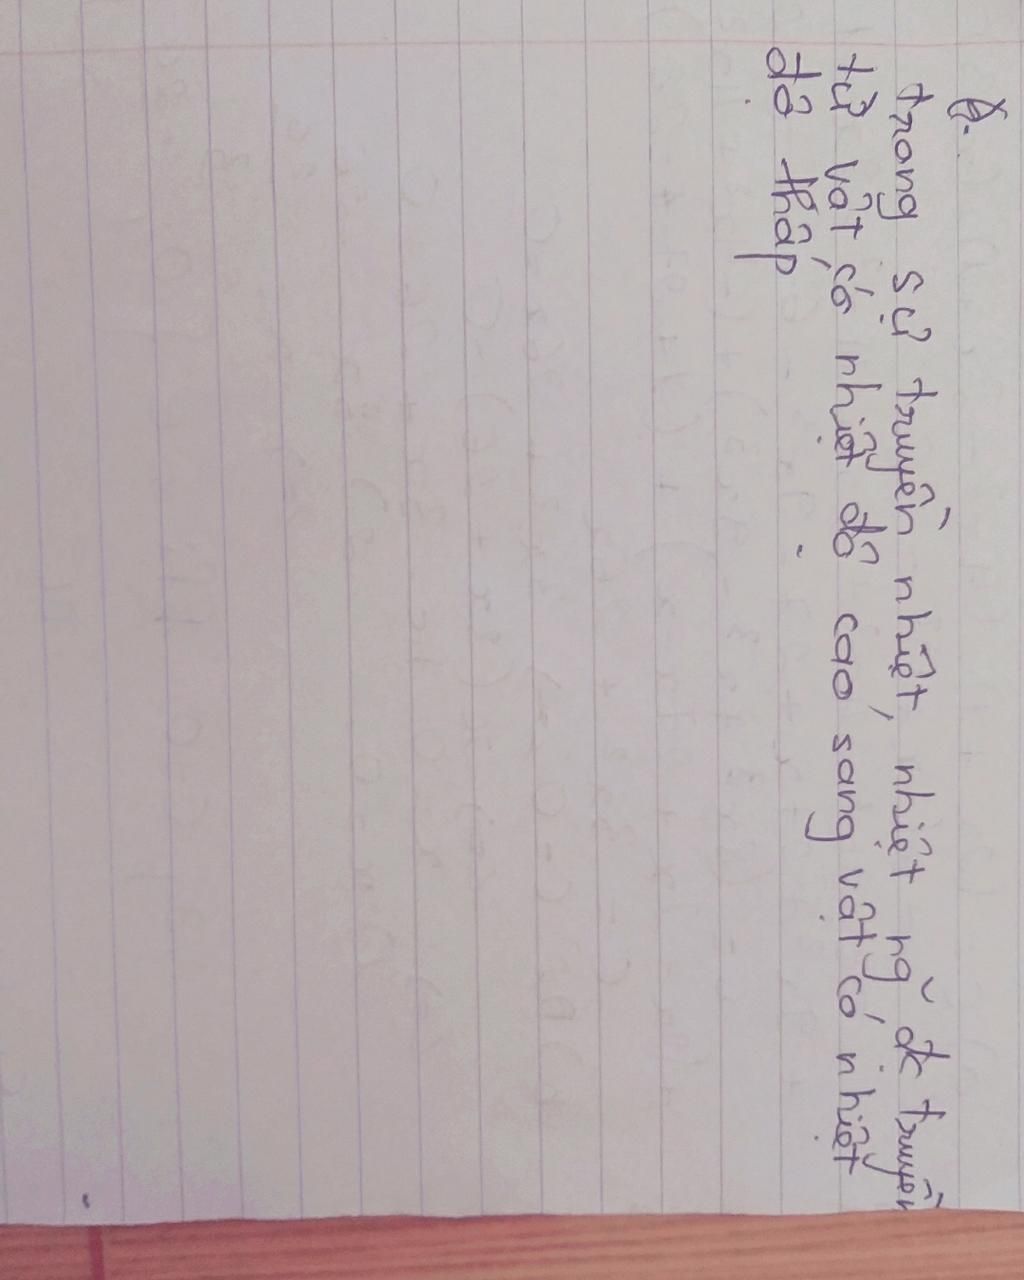 trong sự truyền nhiệt, nhiệt ng đc truyền
từ vật có nhiệt độ cao sang vật có nhiệt
độ thấp